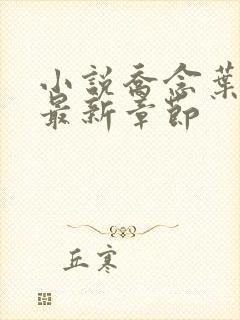 小説喬念葉
最新章節
丘寒